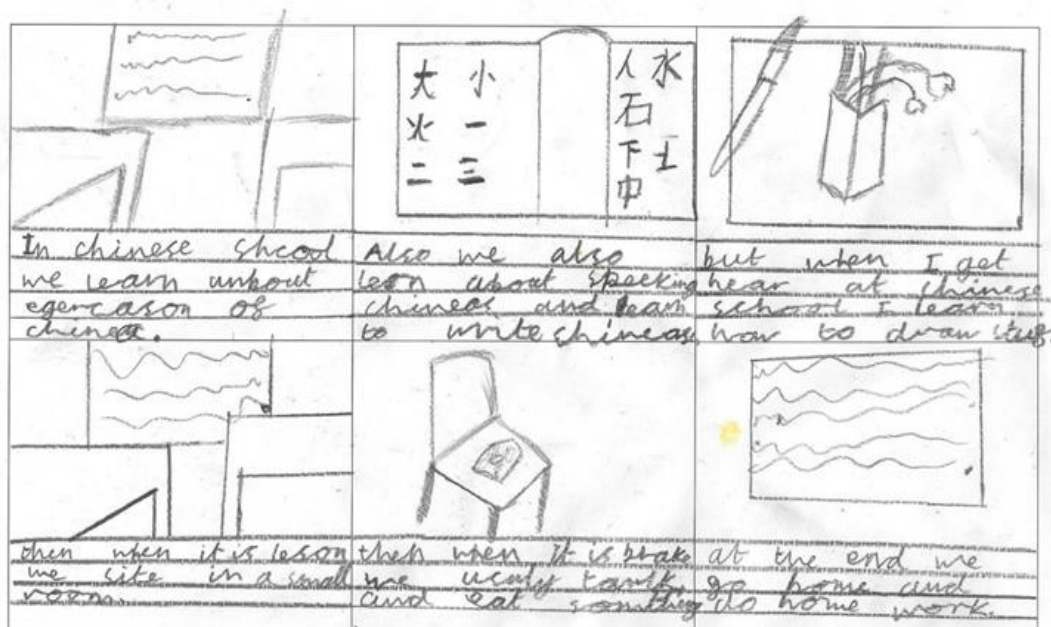 In chinese shcool
we learn unbout
egercason of
chinea.
大 小
火 一
二 三
人 水
石
下 士
中
Also we also
lern about speeking
chineas and learn
to write chineas
but when I get
hear at chinese
school I learn
how to draw stuf.
then when it is leson
we site in a small
room.
then when it is brake
we usuly
and eat something
at the end we
go home and
do home work.